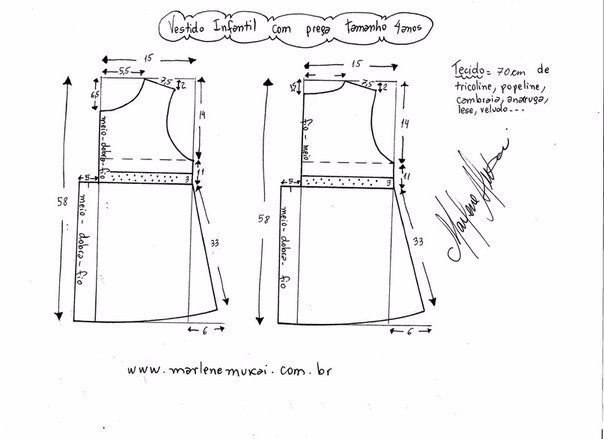 Vestido Infantil com prega tamanho 4anos
Tecido = 70cm de
tricoline, popeline,
cambraia, anarruga,
lese, veludo...
15
5,5
7,5
2
6,5
14
meio-dobra-fio
11
3
5
58
meio-dobra-fio
33
6
15
7,5
2
14
fio-meio
11
3
5
58
meio-dobra-fio
33
6
www.marlenemukai.com.br